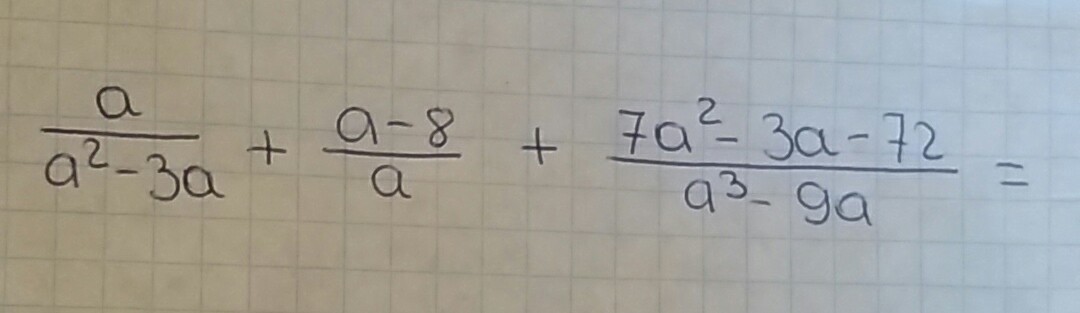 a/(a² - 3a) + (a - 8)/a + (7a² - 3a - 72)/(a³ - 9a) =